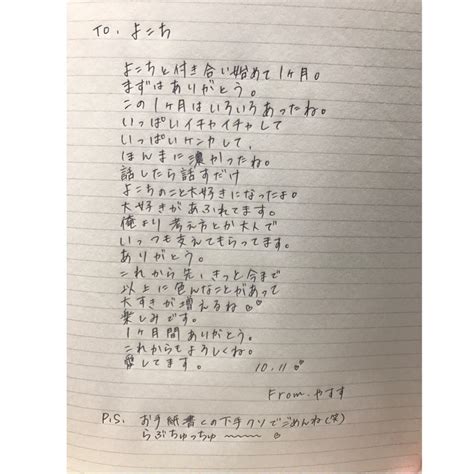 To. よこち
よこちと付き合い始めて1ヶ月。
まずはありがとう。
この1ヶ月はいろいろあったね。
いっぱいイチャイチャして
いっぱいケンカして、
ほんまに濃かったね。
話したら話すだけ
よこちのこと大好きになったよ。
大好きがあふれてます。
俺より考え方とか大人で
いっつも支えてもらってます。
ありがとう。
これから先、きっと今まで
以上に色んなことがあって
大すきが増えるね♡♡
楽しみです。
1ヶ月間ありがとう。
これからもよろしくね。
愛してます。 10.11♡
From.やすす
P.S. お手紙書くの下手クソでごめんね(笑)
らぶちゅっちゅ〜〜〜 ♡